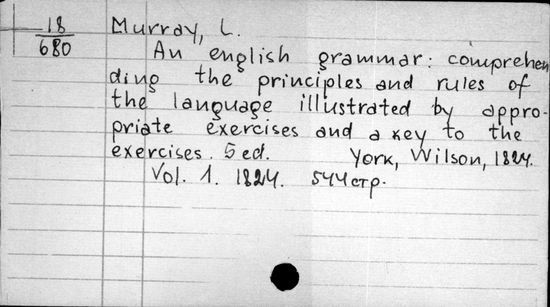 18 Murray, L.
680 An english grammar: comprehen
ding the principles and rules of
the language illustrated by appro-
priate exercises and a key to the
exercises. 5 ed. York, Wilson, 1824.
Vol. 1. 1824. 544 стр.